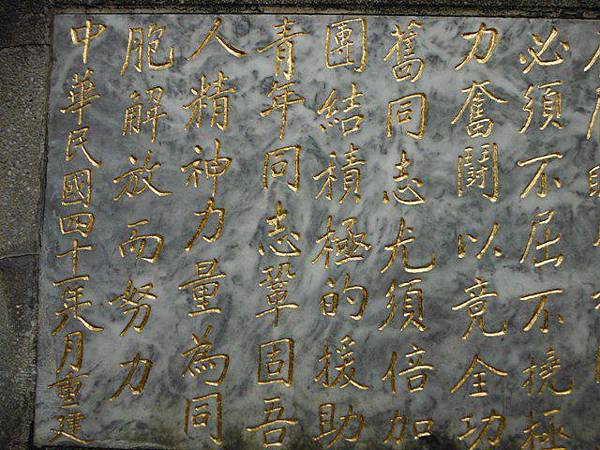 必須不屈不撓極
力奮鬪以竟全功
舊同志尤須倍加
團結積極的援助
青年同志鞏固吾
人精神力量為同
胞解放而努力
中華民國四十一年八月重建